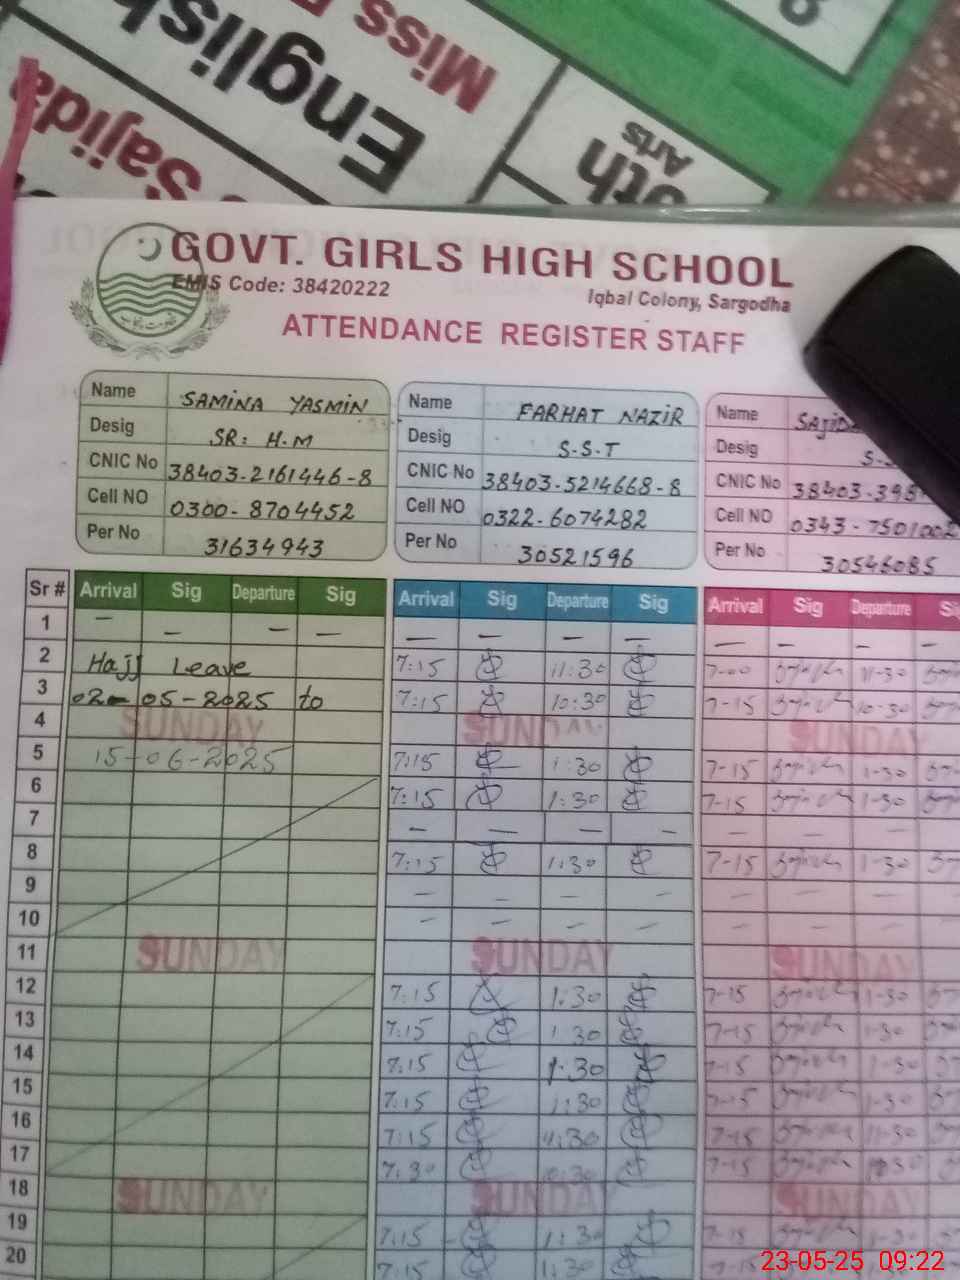 English
Miss
Sajida
9th
Arts
GOVT. GIRLS HIGH SCHOOL
EMIS Code: 38420222
Iqbal Colony, Sargodha
ATTENDANCE REGISTER STAFF
حکومت پنجاب
Name SAMINA YASMIN
Desig SR: H.M
CNIC No 38403-2161446-8
Cell NO 0300-8704452
Per No 31634943
Name FARHAT NAZIR
Desig S.S.T
CNIC No 38403-5214668-8
Cell NO 0322-6074282
Per No 30521596
Name
Desig
CNIC No
Cell NO 0343-7501002
Per No 30546085
Sr # Arrival Sig Departure Sig Arrival Sig Departure Sig Arrival Sig Departure
1 — — — — — — — — — — —
2 Hajj Leave 7:15 11:30 7-00 11-30
3 02-05-2025 to 7:15 10:30 7-15 10-30
4 SUNDAY SUNDAY SUNDAY
5 15-06-2025 7:15 1:30 7-15 1-30
6 7:15 1:30 7-15 1-30
7 — — — — — — —
8 7:15 1:30 7-15 1-30
9 — — — — — — —
10 — — — — — — —
11 SUNDAY SUNDAY SUNDAY
12 7:15 1:30 7-15 1-30
13 7:15 1:30 7-15 1-30
14 7:15 1:30 7-15 1-30
15 7:15 1:30 7-15 1-30
16 7:15 7-15 11-30
17 7:30 7-15
18 SUNDAY SUNDAY SUNDAY
19 7:15 1:30 7-15 1-30
20 7:15 1:30
23-05-25 09:22